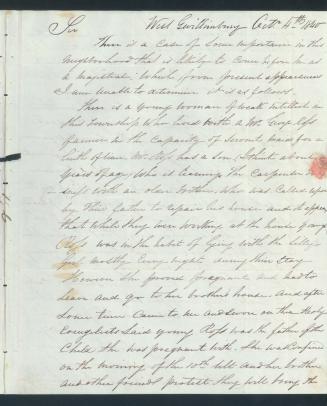 Sir West Gwillimbury Octr 4th 1840
There is a Case of Some importance in this
neighborhood that is likely to Come before me as
a magistrate which from present appearances
I am unable to determine it is as follows
There is a young woman of weak intellect in
this Township Who lived with a Mr Geoge Ross
farmer in the Capacity of Servant maid for a
length of time Mr Ross has a Son, about
years of age, Who is learning the Carpenter
with an older brother, Who was Called upon
by their father to repair his house and it appears
that While they were Working at the house young
Ross was in the habit of lying with the Silly
mostly Every night during their Stay
However She proved pregnant and had to
leave and go to her brother's house. And after
Some time Came to me and Swore on the Holy
Evangelists Said young Ross was the father of the
Child She was pregnant with. She was Confined
on the morning of the 10th Ult and her brother
and other friends protest they will bring the